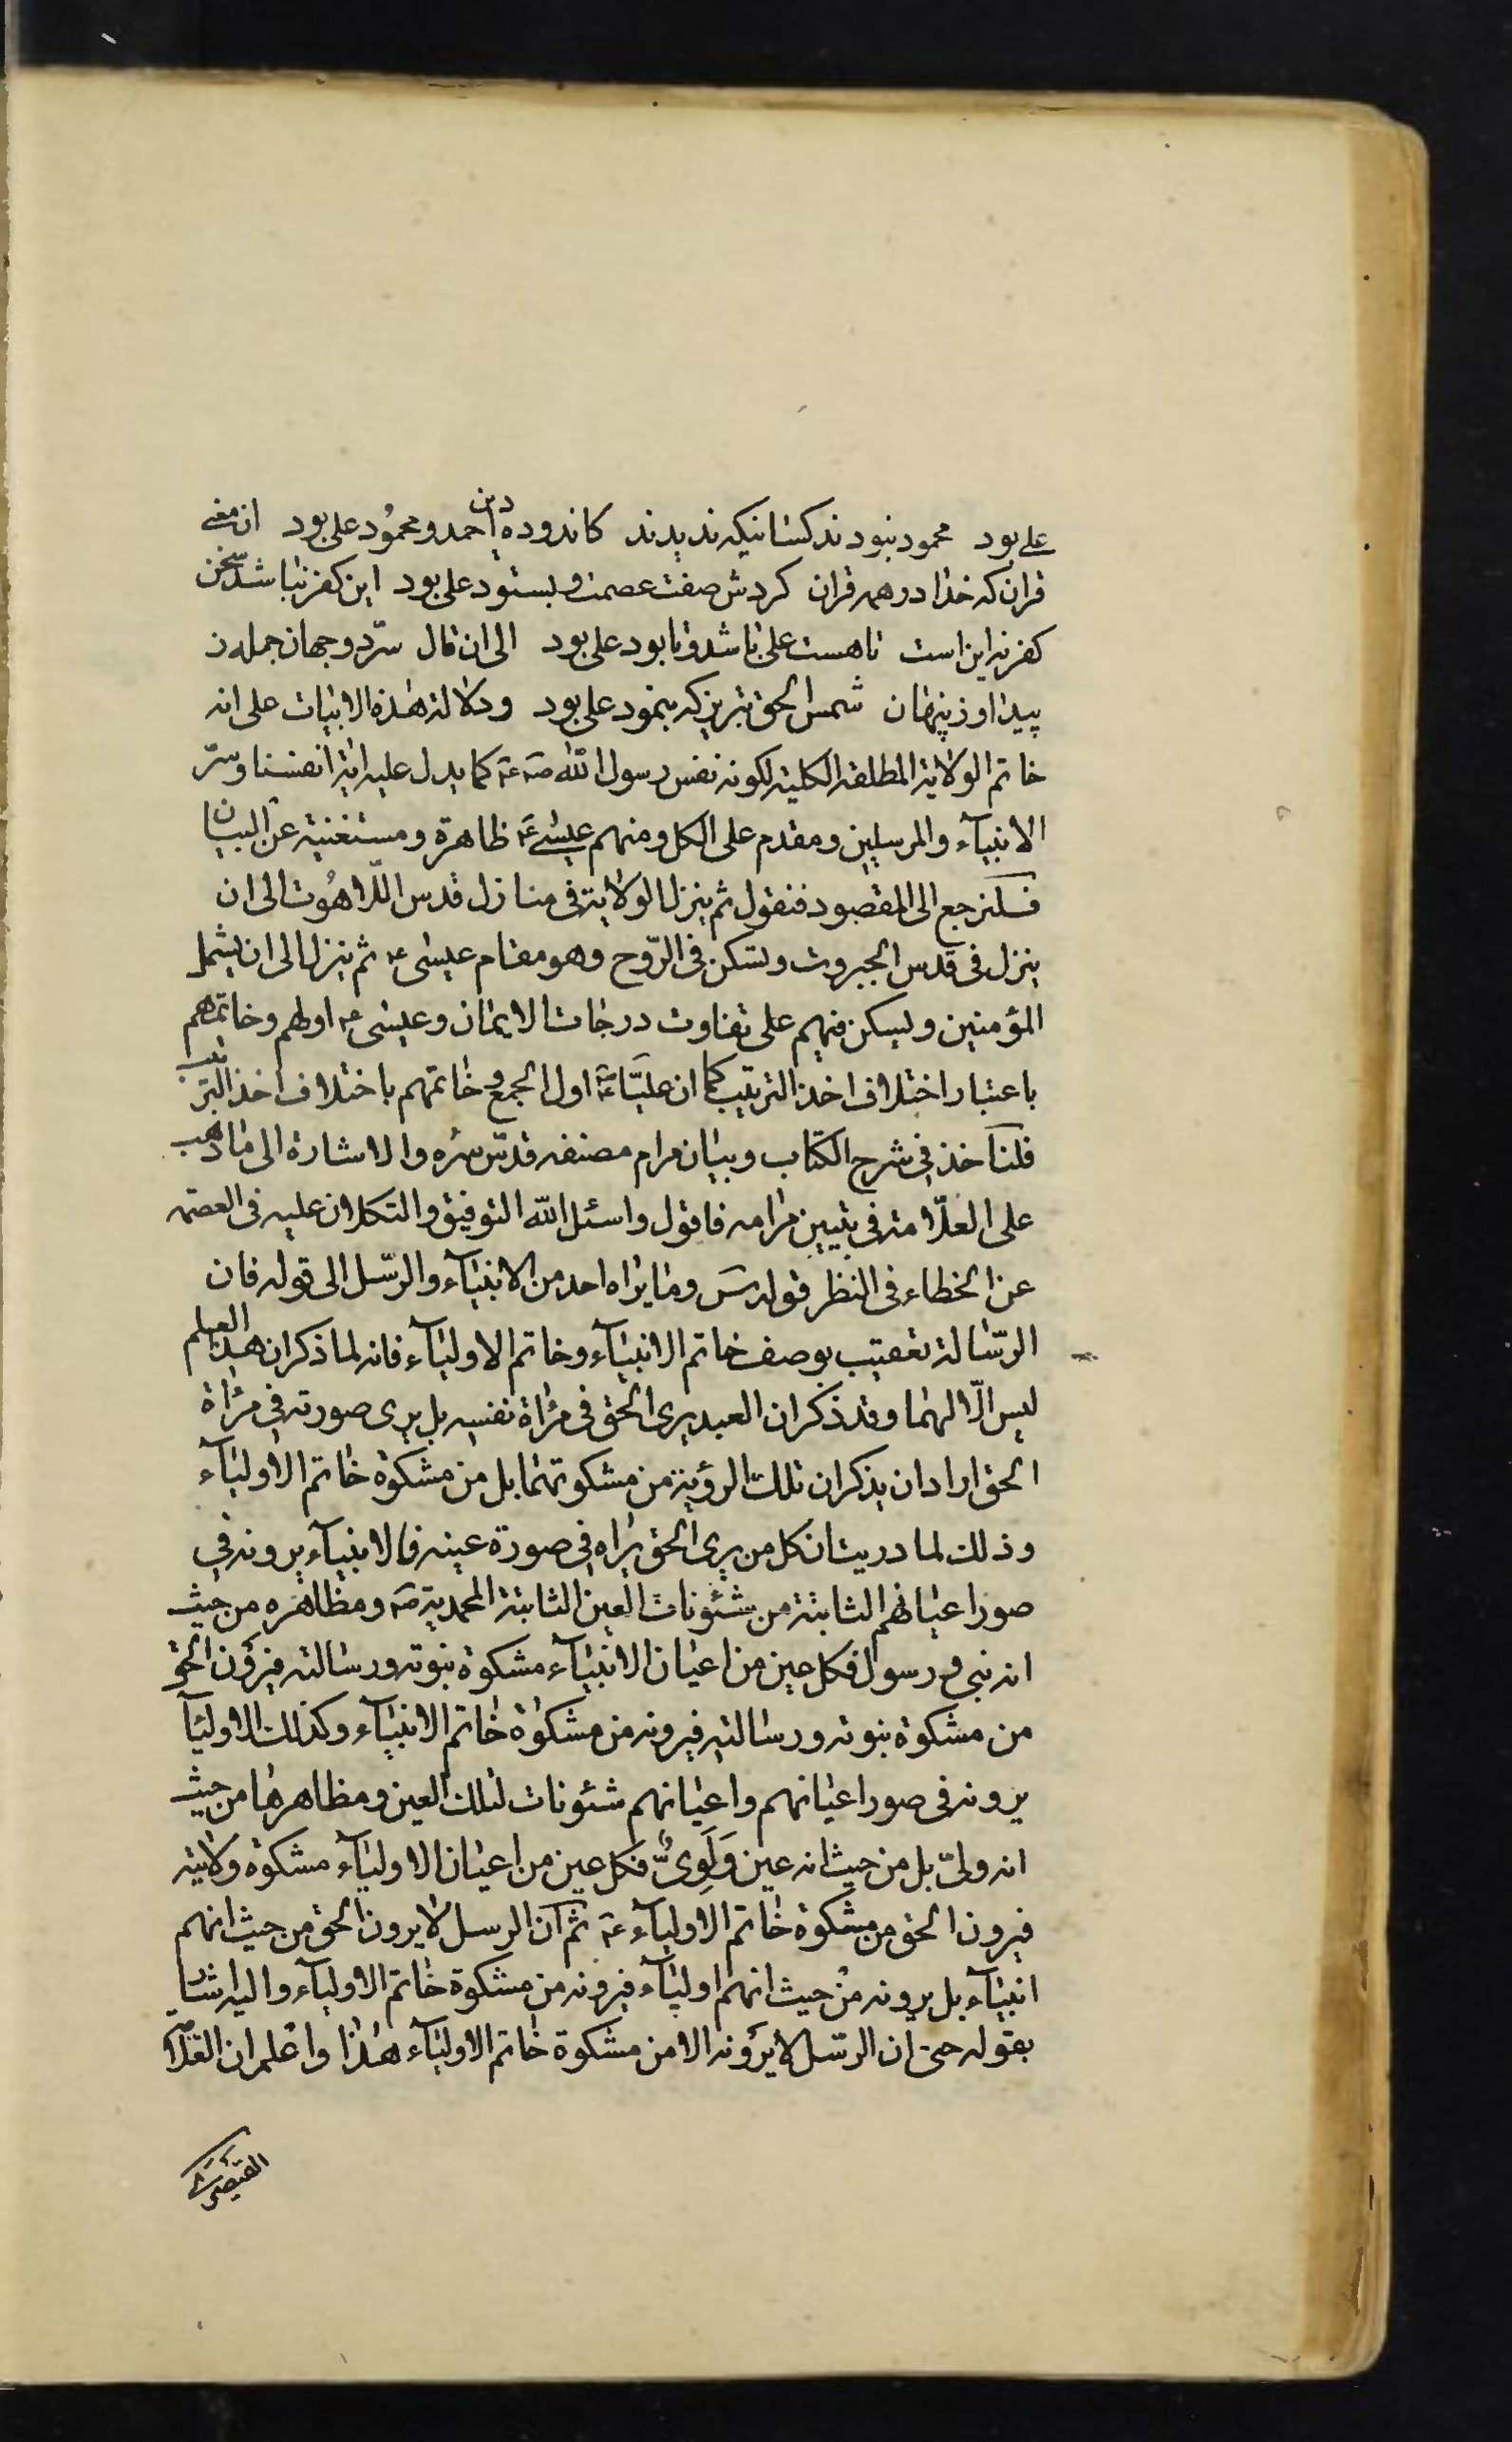 علی بود محمود نبودند کسانیکه ندیدند کاندر ره دین احمد و محمود علی بود ان معنی
قران که خدا در همه قران کردش صفت عصمت و بستود علی بود این کفر نباشد سخن
کفر نه این است تا هست علی باشد و تا بود علی بود الی ان قال سرّ دو جهان جمله ز
پیدا و ز پنهان شمس الحق تبریز که بنمود علی بود ودلالة هذه الابیات علی انه
خاتم الولایة المطلقة الکلیة لکونه نفس رسول الله ص ع کما یدل علیه ایة انفسنا وسرّ
الانبیآء والمرسلین ومقدم علی الکل ومنهم عیسی ع ظاهرة ومستغنیة عن البیان
فلنرجع الی المقصود فنقول ثم ینزل الولایة فی منازل قدس اللّاهُوت الی ان
ینزل فی قدس الجبروت وتسکن فی الرّوح وهو مقام عیسی ع ثم ینزل الی ان یشمل
المؤمنین ویسکن فیهم علی تفاوت درجات الایمان وعیسی ع اولهم وخاتمهم
باعتبار اختلاف اخذ الترتیب کما ان علیّاً ع اول الجمع وخاتمهم باختلاف اخذ الترتیب
فلنأخذ فی شرح الکتاب وبیان مرام مصنفه قدّس سرّه والاشارة الی ما ذهب
علی العلّامة فی تبیین مرامه فاقول واسئل الله التوفیق والتکلان علیه فی العصمة
عن الخطاء فی النظر قوله س وما یراه احد من الانبیآء والرّسل الی قوله فان
الرّسالة تعقیب بوصف خاتم الانبیآء وخاتم الاولیآء فانه لما ذکر ان هذا العلم
لیس الّا لهما وقد ذکر ان العبد یری الحق فی مرأة نفسه بل یری صورته فی مرأة
الحق اراد ان یذکر ان تلک الرؤیة من مشکوتهما بل من مشکوة خاتم الاولیآء
وذلک لما دریت ان کل من یری الحق یراه فی صورة عینه فالانبیآء یرونه فی
صور اعیانهم الثابتة من شئونات العین الثابتة المحمدیة ص ومظاهره من حیث
انه نبی ورسول فکل عین من اعیان الانبیآء مشکوة نبوته ورسالته فیرون الحق
من مشکوة نبوته ورسالته فیرونه من مشکوة خاتم الانبیآء وکذلک الاولیآ
یرونه فی صور اعیانهم واعیانهم شئونات لتلک العین ومظاهرها من حیث
انه ولیّ بل من حیث انه عین فکل عین من اعیان الاولیآء مشکوة ولایته
فیرون الحق من مشکوة خاتم الاولیآء ع ثم ان الرسل لا یرون الحق من حیث انهم
انبیآء بل یرونه من حیث انهم اولیآء فیرونه من مشکوة خاتم الاولیآء والیه اشار
بقوله حتی ان الرّسل لا یرونه الا من مشکوة خاتم الاولیآء هذا واعلم ان العلّا
القیصری